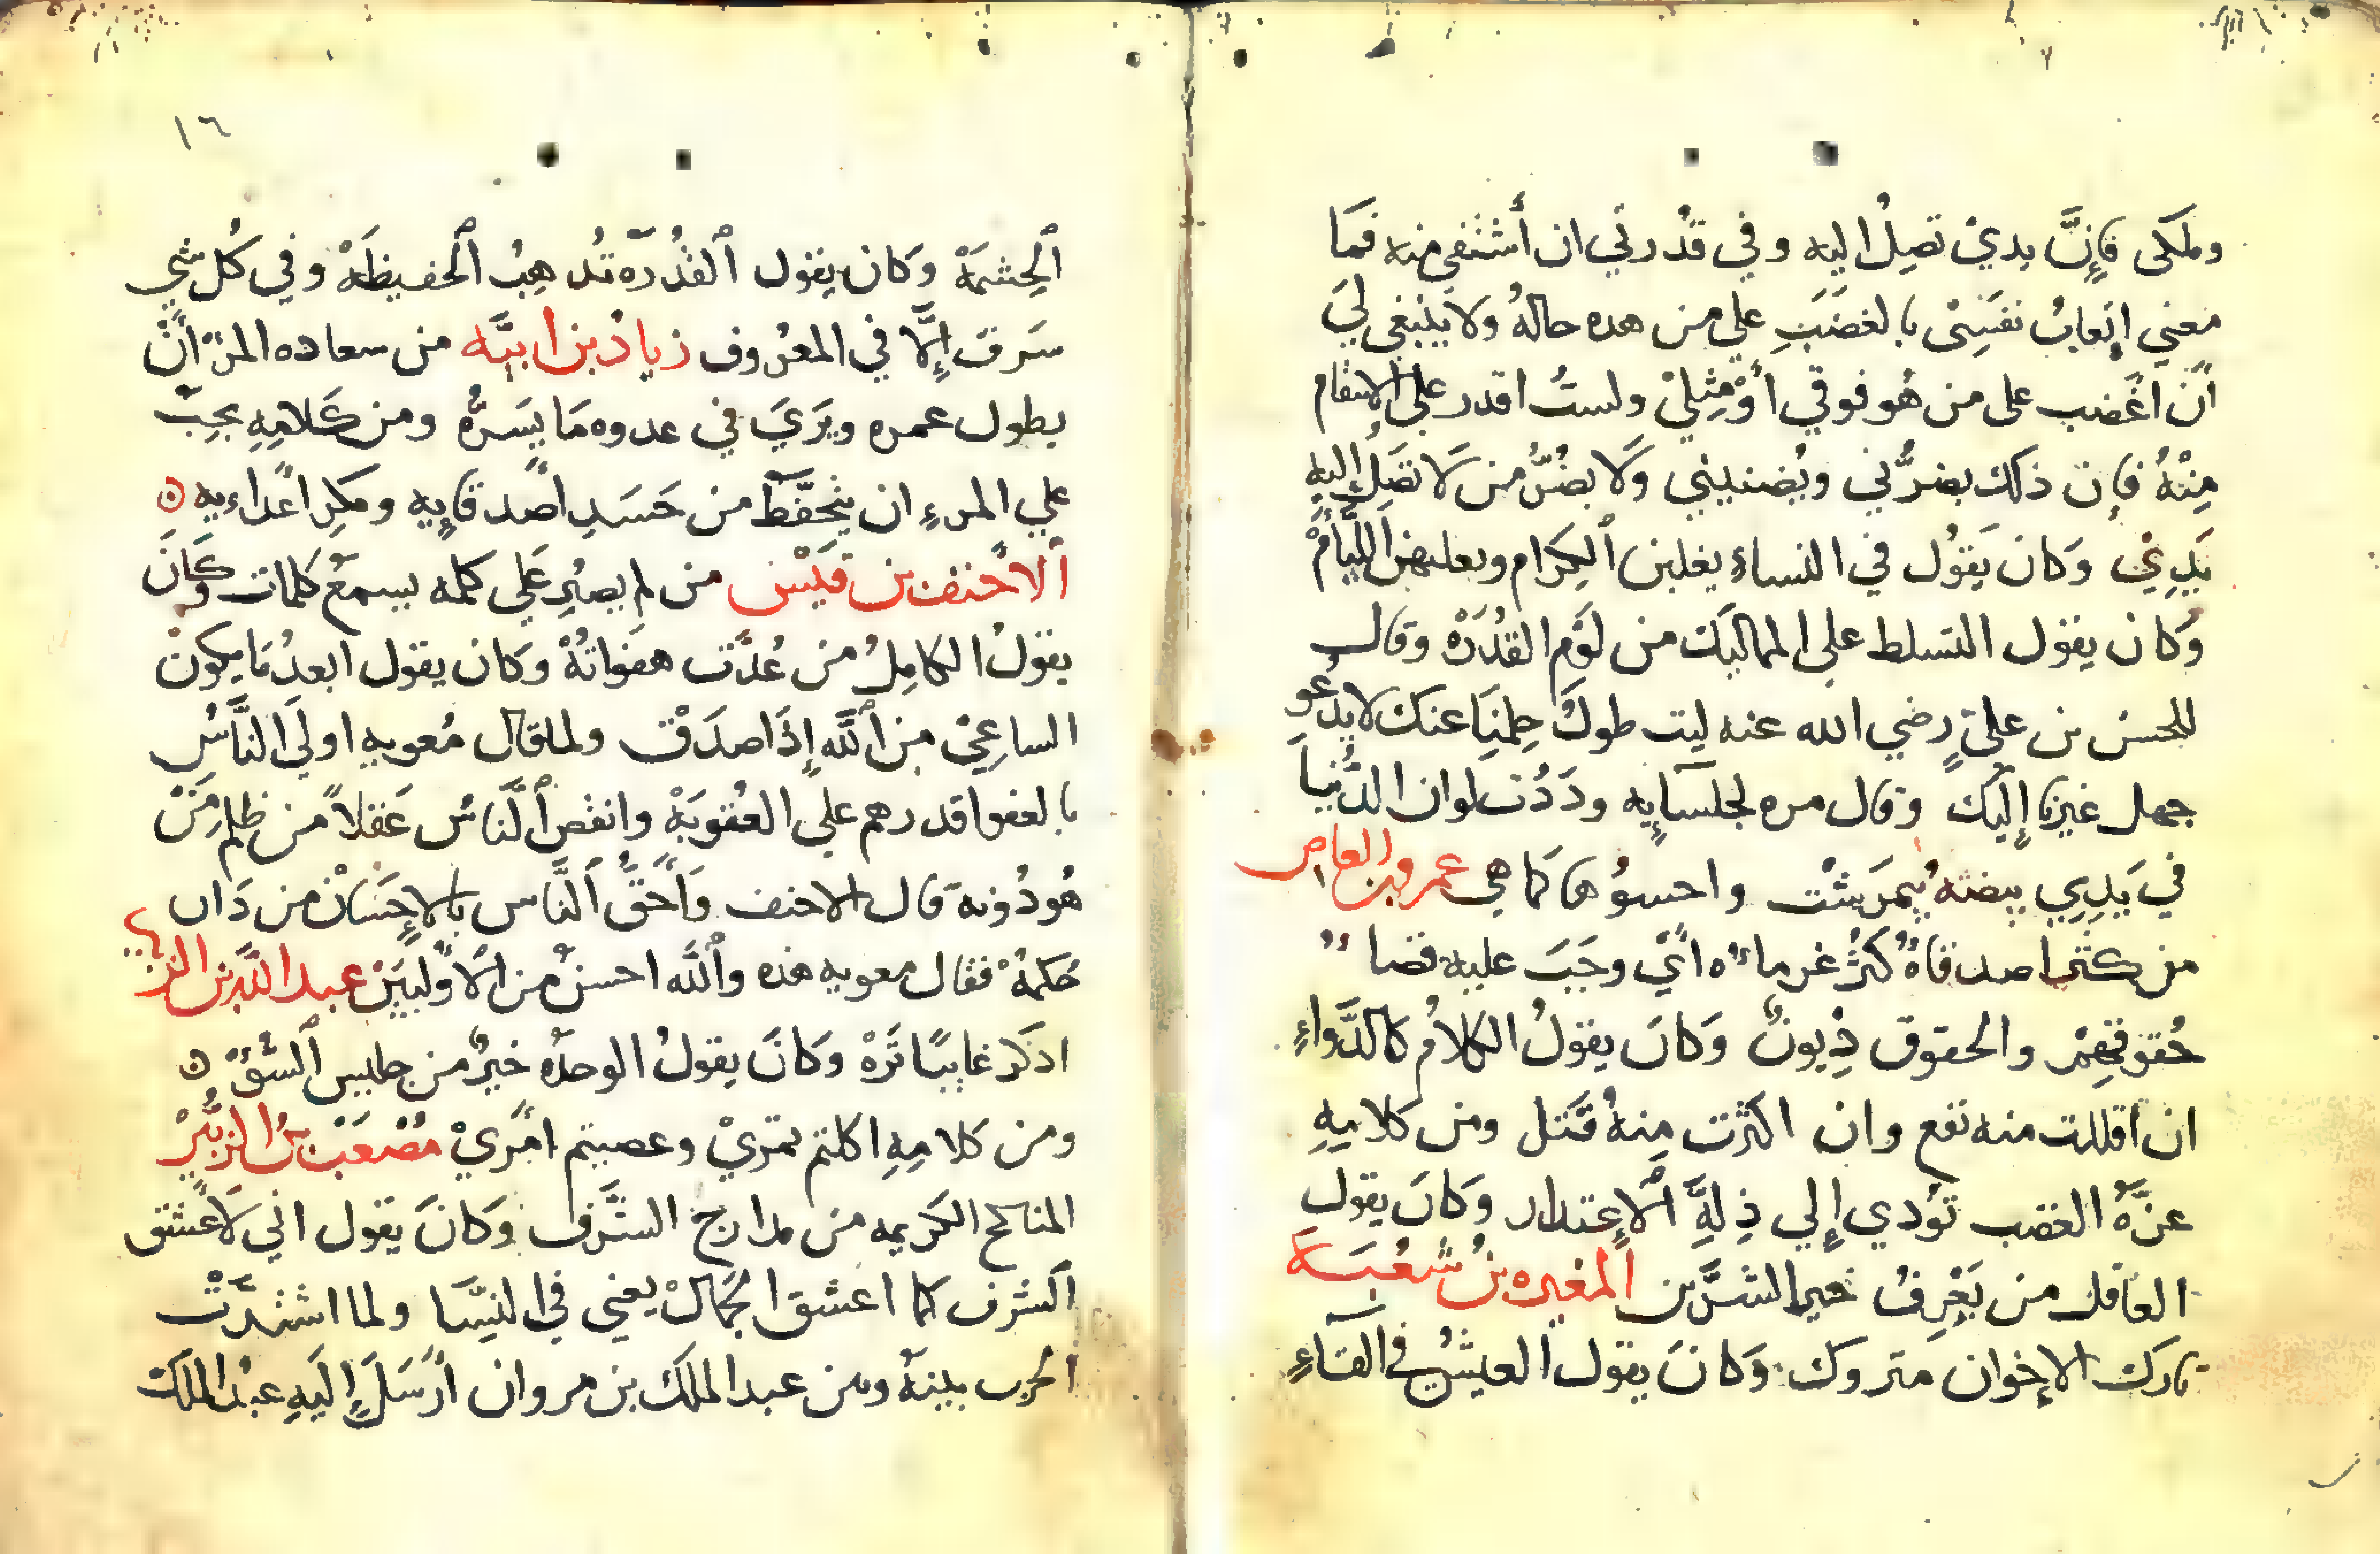 وملكى فَإِنَّ يدي تصِلُ اليه وفي قدُرتي ان أشتفي منه فمَا
معني إتعابُ نفسِيْ بالغضَبِ على من هده حالهُ ولا ينبغي ليَ
أن اغضب على من هُو فوقي أوْ مثِليْ ولستُ اقدر على الانتقام
مِنْهُ فإن ذلك يضرُّني ويُضنيني وَلا يضُرُّ من لَا تصَِلُ إليهِ
يَدِي وَكان يَقوُل في النساءِ يغلبن ٱلكِرَام ويغلبهن اللِّيَأمْ
وَكان يقول التسلط على المماليَك من لوَمِ القدُرَةْ وقال
للحسن بن عليٍّ رضي الله عنه ليت طولَ حِلمنِا عنكَ لا يدْعُو
جهل غيرنا إِليك وقال مره لجلسآيِه ودَدُت لو ان الدُّنيا
في يَدِي بيضَة نِيمرَشتْ واحسوُها كَما هي عمرو بن العاص
من كثر اصدقاهُ كثُرُ غرماؤُه ايْ وجَبَ عليه قضا
حُقوقهِمْ والحقوق دِيونٌ وَكانَ يقولُ الكلامُ كالدَّواءِ
ان اقللت منه نفع وان اكثرت مِنهُ قَتل ومن كلامِهِ
عزَّةُ الغضب تؤدي إِلي ذِلةِ ٱلإعتذار وَكانَ يقول
العاقل من يَعْرِفُ خير الشرَّين المغيره بنُ شعُبَة
تارك الإخوان متروك وَكانَ يقول العيشُ في القآءِ
١٦
ٱلحِشمَةْ وَكان يقول ٱلقدُرَه تُدهِبُ ٱلحفيظَهْ وفي كُل شيءٍ
سَرَف إِلَّا في المعرُوف زيادُ بن أبيَّه من سعاده المرْ أنْ
يطول عمره ويرَيَ في عدوه مَا يسَرُّهُ ومن كَلامِهِ يجِبْ
علي المرءِ ان يتحَفَّظَ من حَسَدِ أصدقايِه ومَكرِ اعداءيه
ٱلاحنف بن قيَسْ من لم يصبِر علَي كلمه يسمعُ كلمات وكَانَ
يقولُ الكامِلُ من عُدَّت هفواتهُْ وَكان يقول ابعدُ مَا يكونْ
الساعِيْ من ٱللَّه إِذَا صدَقْ ولما قال مُعويه اولَي النَّاسُ
بالعفو اقدرهم علي العقُوبَةْ وانقصُ ٱلنَّاسُ عَقلاً من ظلم مَنْ
هُو دُونه قال الاحنف وَأحَقُّ ٱلنَّاس بالإِحسَانْ من دَان
حكمهْ فقال معويه هذه وٱللَّه احسنُ من الأوَّليَينْ عبد اللَّه بن الزبير
اذكر غايبًا تَرَهْ وَكانَ يقولُ الوحدَه خيرٌ من جليس ٱلسُّوْ
ومن كلامِهِ اكلتم تمريْ وعصيتم امَريْ مصُعَبْ بنُ الزبُّيَرْ
المناكح الكريمه من مدارج الشَّرف وَكانَ يقول اني لاَعشق
ٱلشرف كما اعشق ٱلجَمالْ يعني في النسَِا ولما اشتدَّتْ
ٱلحرب بينَهُ وبين عبد الملَك بن مروان أرْسَلَ إِليَهِ عبدُ الملك